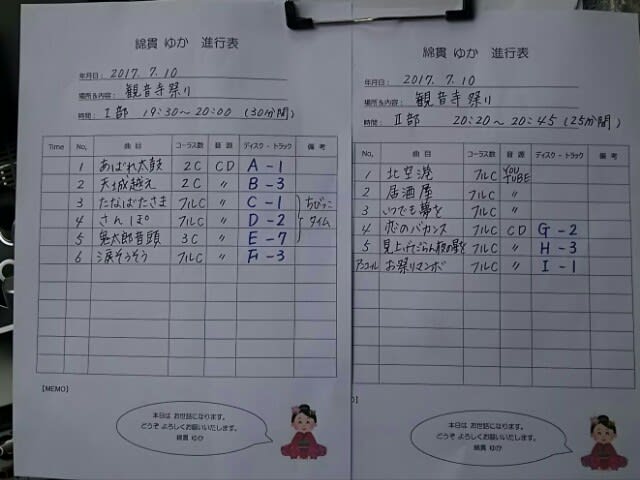 綿貫 ゆか 進行表
年月日： 2017. 7. 10
場所&内容： 観音寺祭り
時間： Ⅰ部 19:30~20:00 (30分間)
Time No, 曲目 コーラス数 音源 ディスク・トラック 備考
1 あばれ太鼓 2C CD A-1
2 天城越え 2C 〃 B-3
3 たなばたさま フルC 〃 C-1 ちびっこ
4 さんぽ フルC 〃 D-2 タイム
5 鬼太郎音頭 3C 〃 E-7
6 涙そうそう フルC 〃 F-3
【MEMO】
本日は お世話になります。
どうぞ よろしくお願いいたします。
綿貫 ゆか
綿貫 ゆか 進行表
年月日： 2017. 7. 10
場所&内容： 観音寺祭り
時間： Ⅱ部 20:20~20:45 (25分間)
No, 曲目 コーラス数 音源 ディスク・トラック 備考
1 北空港 フルC YOU TUBE
2 居酒屋 フルC 〃
3 いつでも夢を フルC 〃
4 恋のバカンス フルC CD G-2
5 見上げてごらん夜の星を フルC 〃 H-3
アンコール お祭りマンボ フルC 〃 I-1
MO】
本日は お世話になります。
どうぞ よろしくお願いいたします。
綿貫 ゆか